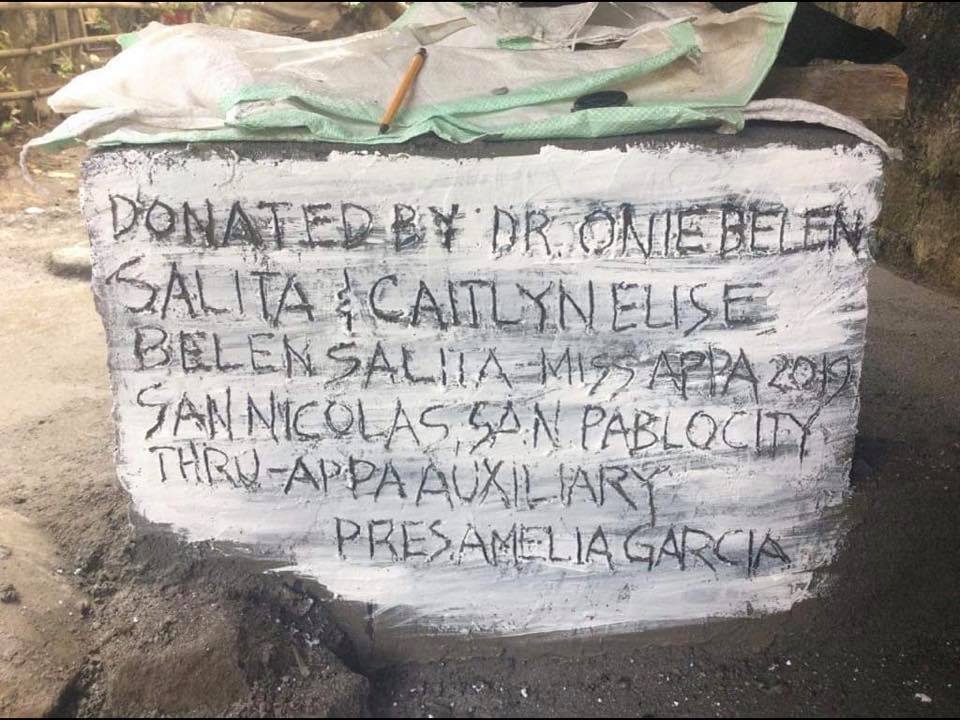 DONATED BY DR. ONIE BELEN
SALITA & CAITLYN ELISE
BELEN SALITA - MISS APPA 2019
SAN NICOLAS, SAN PABLO CITY
THRU - APPA AUXILIARY
PRES. AMELIA GARCIA